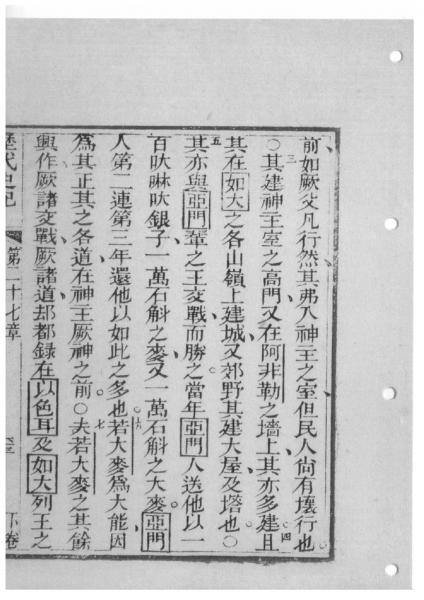 前如厥父凡行然其弗入神王之室但民人尚有壞行也
三○其建神王室之高門又在阿非勒之墻上其亦多建且
四其在如大之各山嶺上建城又郊野其建大屋及塔也○
五其亦與亞門輩之王交戰而勝之當年亞門人送他以一
百㕭㗲㕭銀子一萬石斛之麥又一萬石斛之大麥亞門
人第二連第三年還他以如此之多也六若大麥為大能因
為其正其之各道在神王厥神之前○七夫若大麥之其餘
興作厥諸交戰厥諸道却都錄在以色耳及如大列王之
歷代史記 第二十七章 下卷